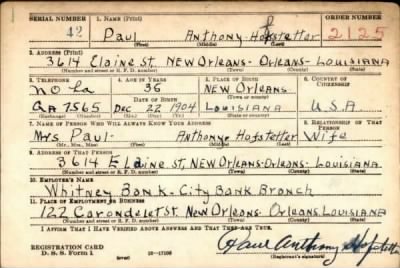 SERIAL NUMBER 1. NAME (Print) ORDER NUMBER
42 Paul Anthony Hofstetter 2125
(First) (Middle) (Last)
2. ADDRESS (Print)
3614 Elaine St. NEW ORLEANS - ORLEANS - LOUISIANA
(Number and street or R. F. D. number) (Town) (County) (State)
3. TELEPHONE 4. AGE IN YEARS 5. PLACE OF BIRTH 6. COUNTRY OF CITIZENSHIP
NOLA 36 NEW ORLEANS
DATE OF BIRTH (Town or county)
GA 7565 Dec 22 1904 LOUISIANA U.S.A
(Exchange) (Number) (Mo.) (Day) (Yr.) (State or country)
7. NAME OF PERSON WHO WILL ALWAYS KNOW YOUR ADDRESS 8. RELATIONSHIP OF THAT PERSON
Mrs Paul Anthony Hofstetter Wife
(Mr., Mrs., Miss) (First) (Middle) (Last)
9. ADDRESS OF THAT PERSON
3614 Elaine St, NEW ORLEANS - ORLEANS - LOUISIANA
(Number and street or R. F. D. number) (Town) (County) (State)
10. EMPLOYER'S NAME
Whitney Bank - City Bank Branch
11. PLACE OF EMPLOYMENT OR BUSINESS
122 Carondelet St. New Orleans. Orleans. Louisiana
(Number and street or R. F. D. number) (Town) (County) (State)
I AFFIRM THAT I HAVE VERIFIED ABOVE ANSWERS AND THAT THEY ARE TRUE.
REGISTRATION CARD
D. S. S. Form 1 (over) 16—17105 Paul Anthony Hofstett
(Registrant's signature)